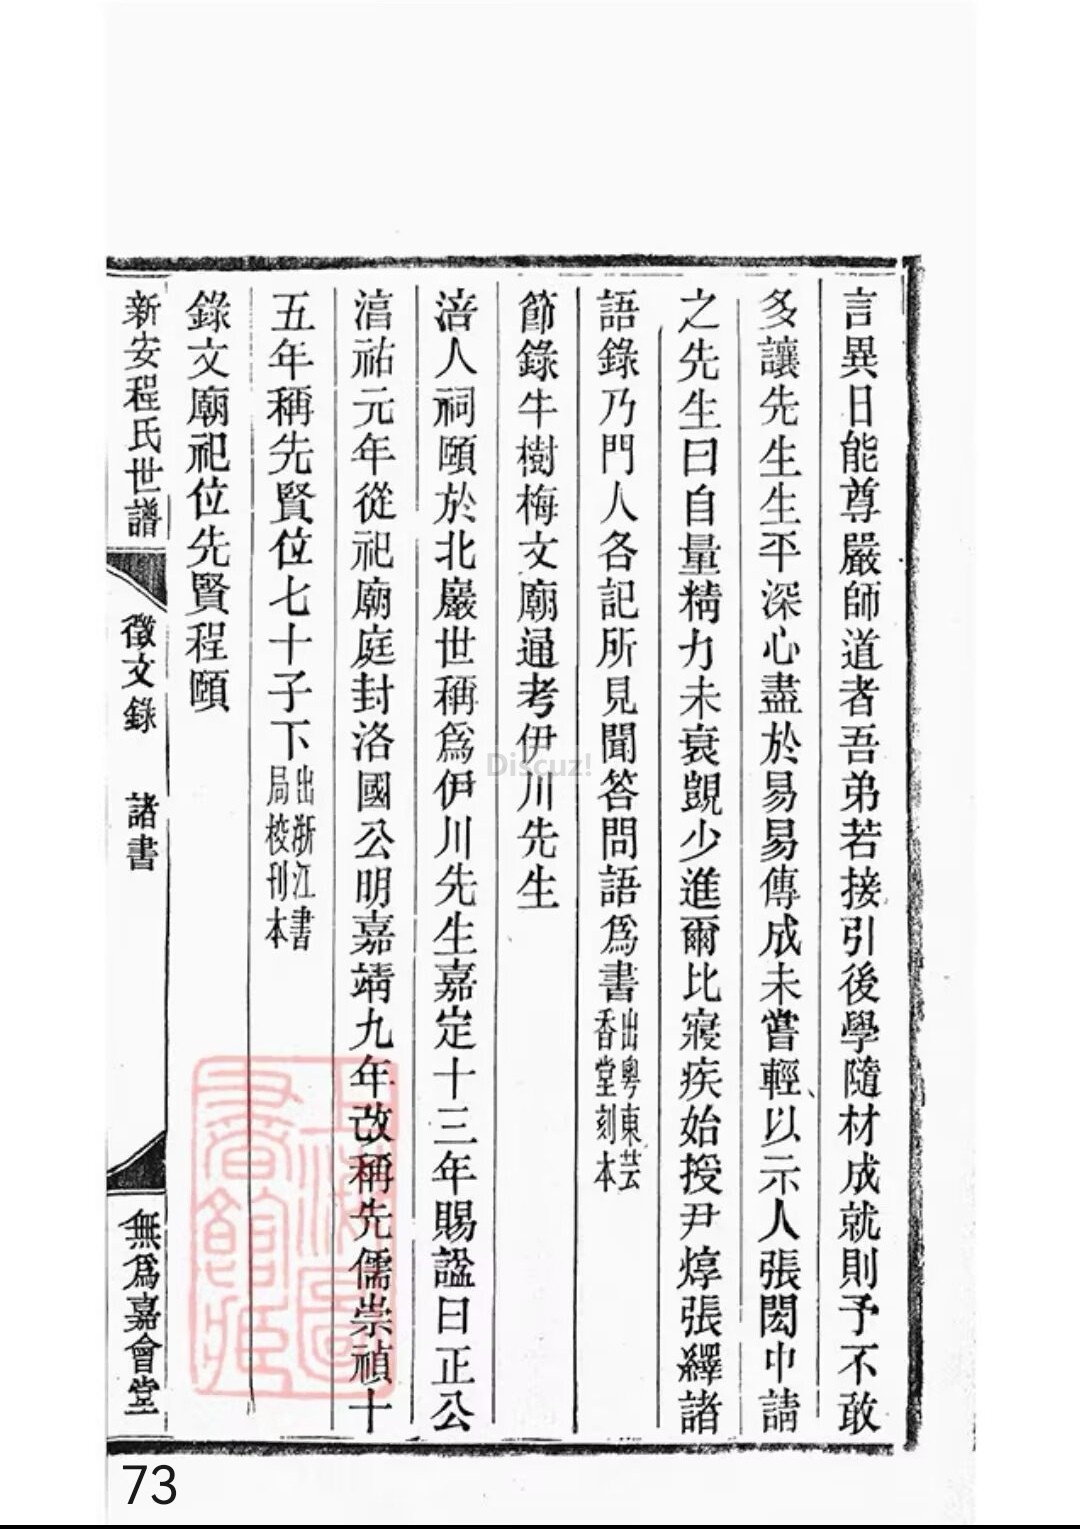 言異日能尊嚴師道者吾弟若接引後學隨材成就則予不敢
多讓先生生平深心盡於易易傳成未嘗輕以示人張閎中請
之先生曰自量精力未衰覬少進爾比寢疾始授尹焞張繹諸
語錄乃門人各記所見聞答問語爲書出粵東芸香堂刻本
節錄牛樹梅文廟通考伊川先生
涪人祠頤於北巖世稱爲伊川先生嘉定十三年賜諡曰正公
淯祐元年從祀廟庭封洛國公明嘉靖九年改稱先儒崇禎十
五年稱先賢位七十子下出浙江書局校刊本
錄文廟祀位先賢程頤
新安程氏世譜 徵文錄 諸書 無爲嘉會堂
上海圖書館藏
Discuz!
73